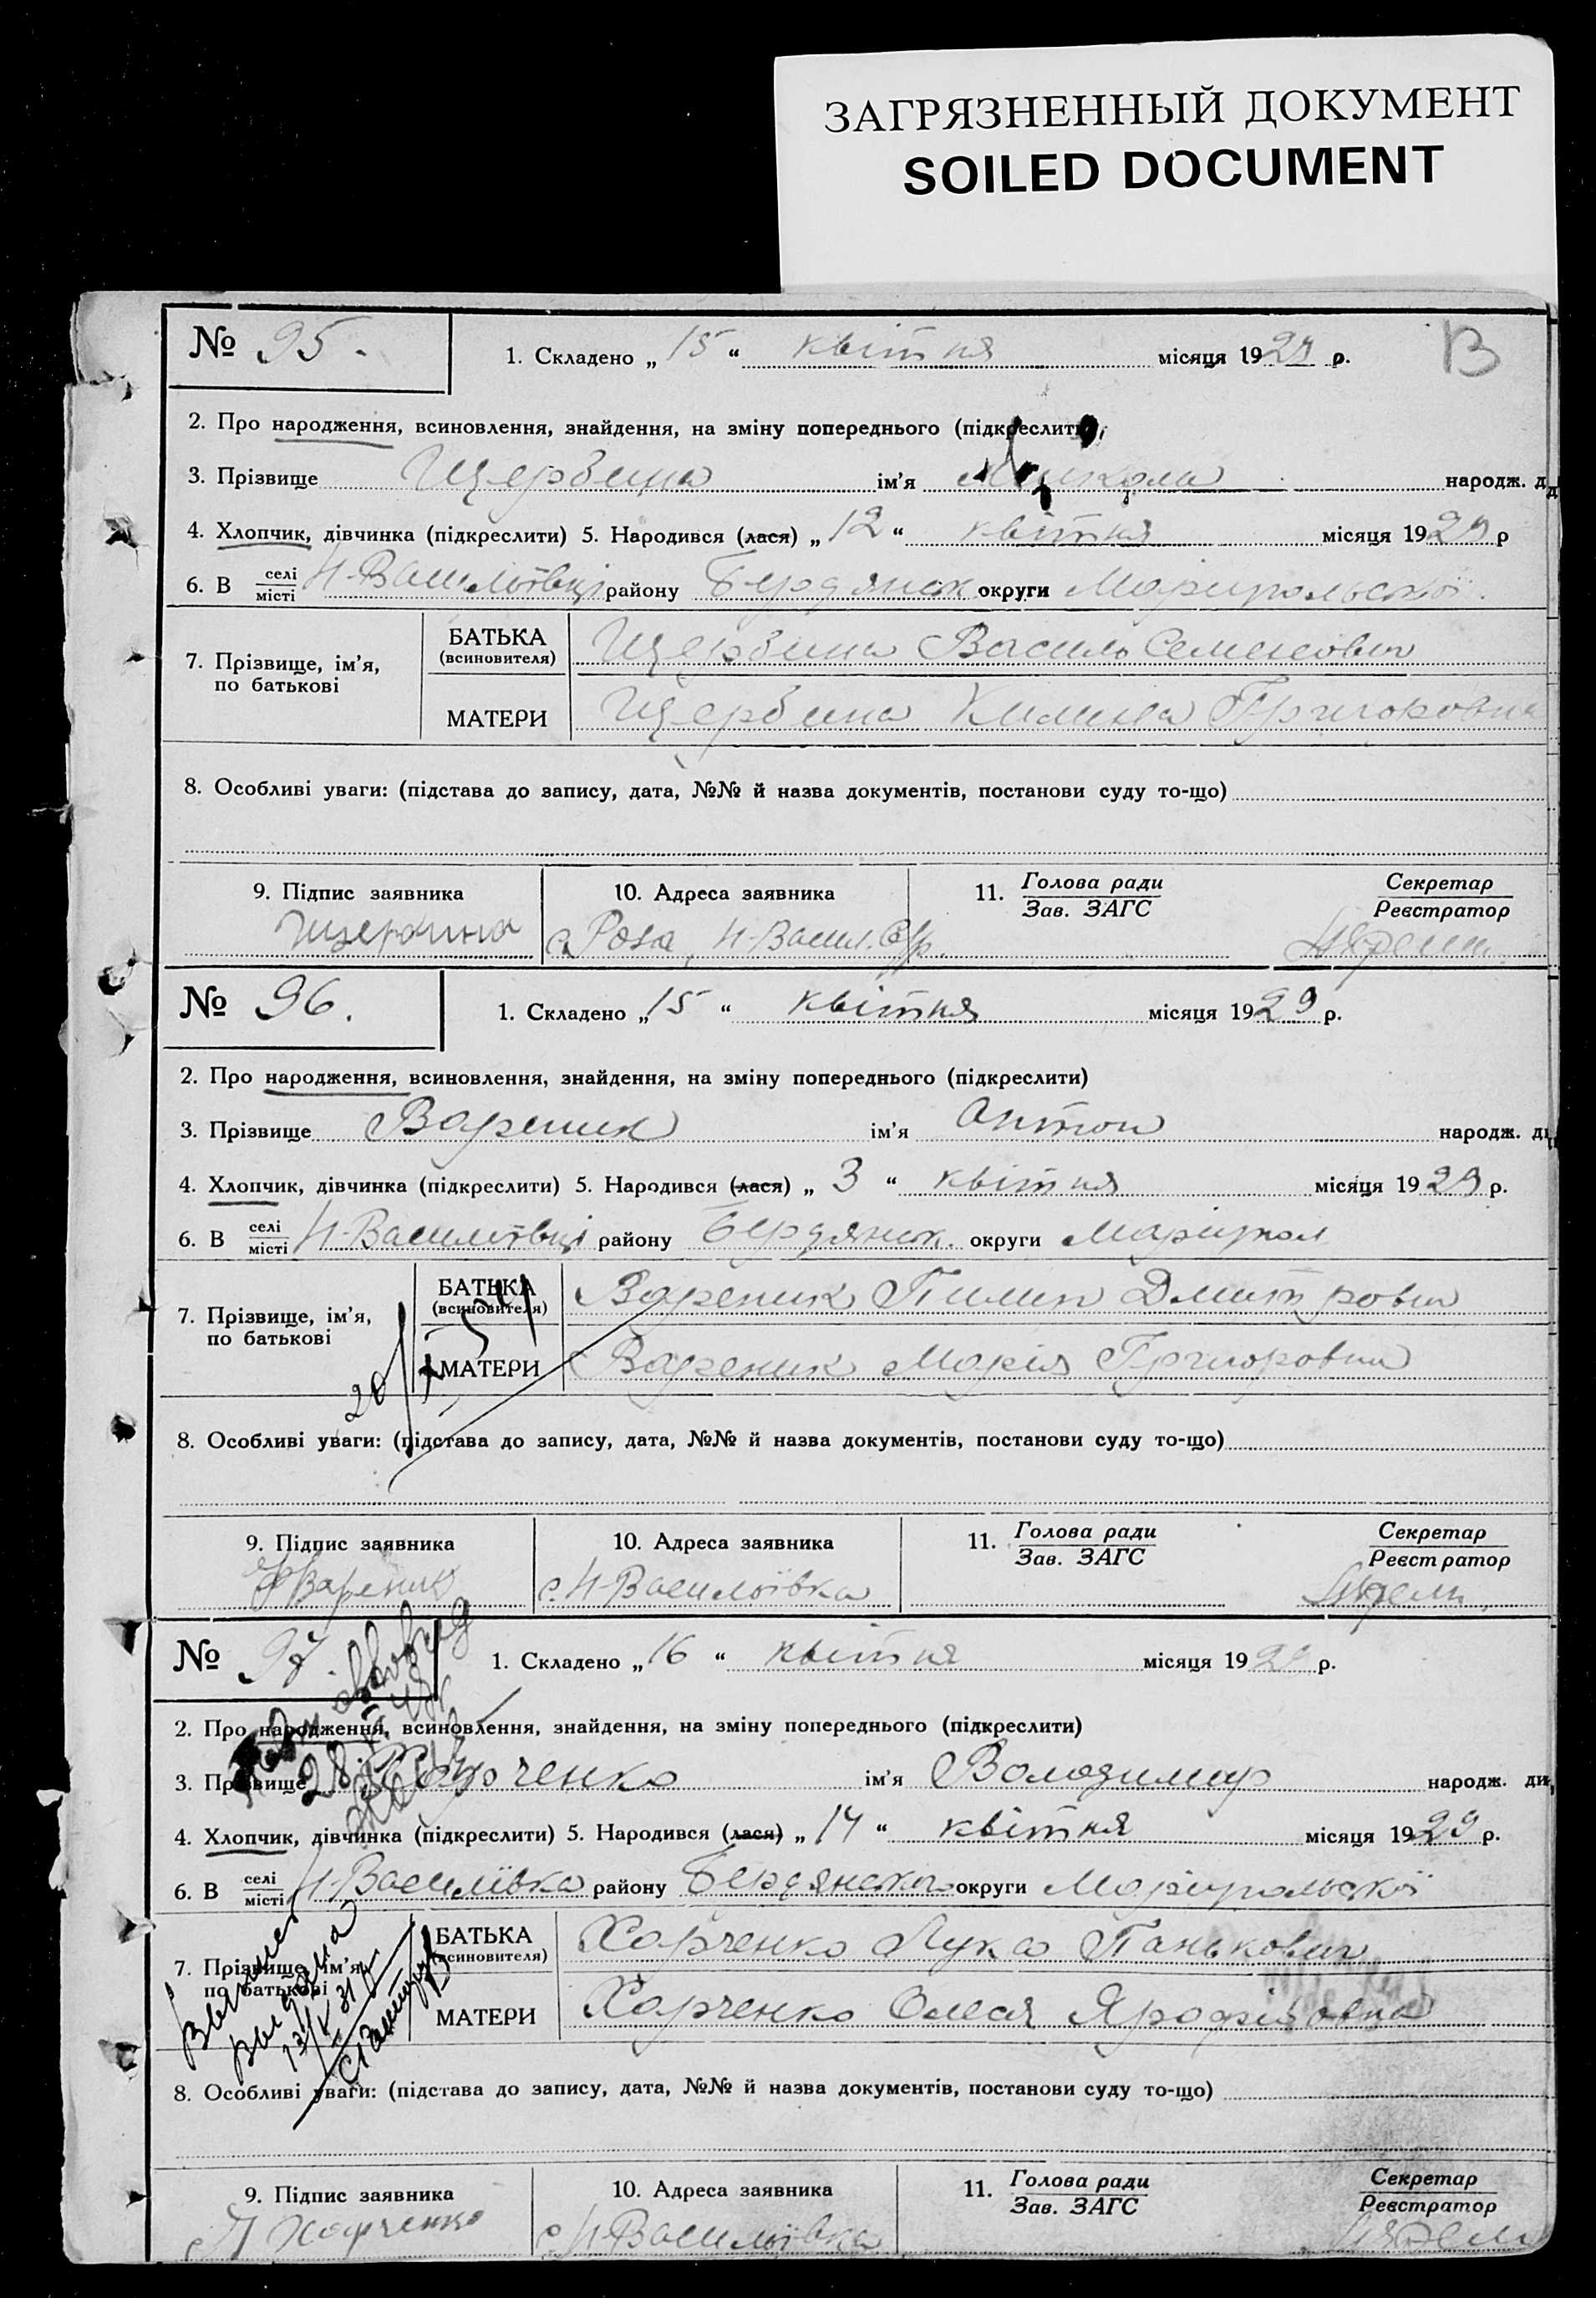 ЗАГРЯЗНЕННЫЙ ДОКУМЕНТ
SOILED DOCUMENT
В
№ 95. 1. Складено „15“ квітня місяця 1929 р.
2. Про народження, всиновлення, знайдення, на зміну попереднього (підкреслити)
3. Прізвище Щербина ім’я Микола народж. д
4. Хлопчик, дівчинка (підкреслити) 5. Народився (лася) „12“ квітня місяця 1929 р
6. В селі місті Н-Василівці району Бердянськ округи Маріупольської.
7. Прізвище, ім’я, по батькові
БАТЬКА (всиновителя) Щербина Василь Семенович
МАТЕРИ Щербина Григоровна
8. Особливі уваги: (підстава до запису, дата, №№ й назва документів, постанови суду то-що)
9. Підпис заявника 10. Адреса заявника 11. Голова ради Зав. ЗАГС Секретар Реєстратор
Щербина с. Роза, Н-Васил. С/р.
№ 96. 1. Складено „15“ квітня місяця 1929 р.
2. Про народження, всиновлення, знайдення, на зміну попереднього (підкреслити)
3. Прізвище Вареник ім’я Антон народж. ди
4. Хлопчик, дівчинка (підкреслити) 5. Народився (лася) „3“ квітня місяця 1929 р.
6. В селі місті Н-Василівці району Бердянськ. округи Маріупол
7. Прізвище, ім’я, по батькові
БАТЬКА (всиновителя) Вареник Пимен Дмитрович
МАТЕРИ Вареник Марія Григоровна
8. Особливі уваги: (підстава до запису, дата, №№ й назва документів, постанови суду то-що)
9. Підпис заявника 10. Адреса заявника 11. Голова ради Зав. ЗАГС Секретар Реєстратор
Вареник с. Н-Василівка
№ 97. 1. Складено „16“ квітня місяця 1929 р.
2. Про народження, всиновлення, знайдення, на зміну попереднього (підкреслити)
3. Прізвище Харченко ім’я Володимир народж. ди,
4. Хлопчик, дівчинка (підкреслити) 5. Народився (лася) „14“ квітня місяця 1929 р.
6. В селі місті Н-Василівка району Бердянського округи Маріупольської
7. Прізвище, ім’я, по батькові
БАТЬКА (всиновителя) Харченко Лука Панькович
МАТЕРИ Харченко Олеся
8. Особливі уваги: (підстава до запису, дата, №№ й назва документів, постанови суду то-що)
9. Підпис заявника 10. Адреса заявника 11. Голова ради Зав. ЗАГС Секретар Реєстратор
Харченко с. Н-Василівка